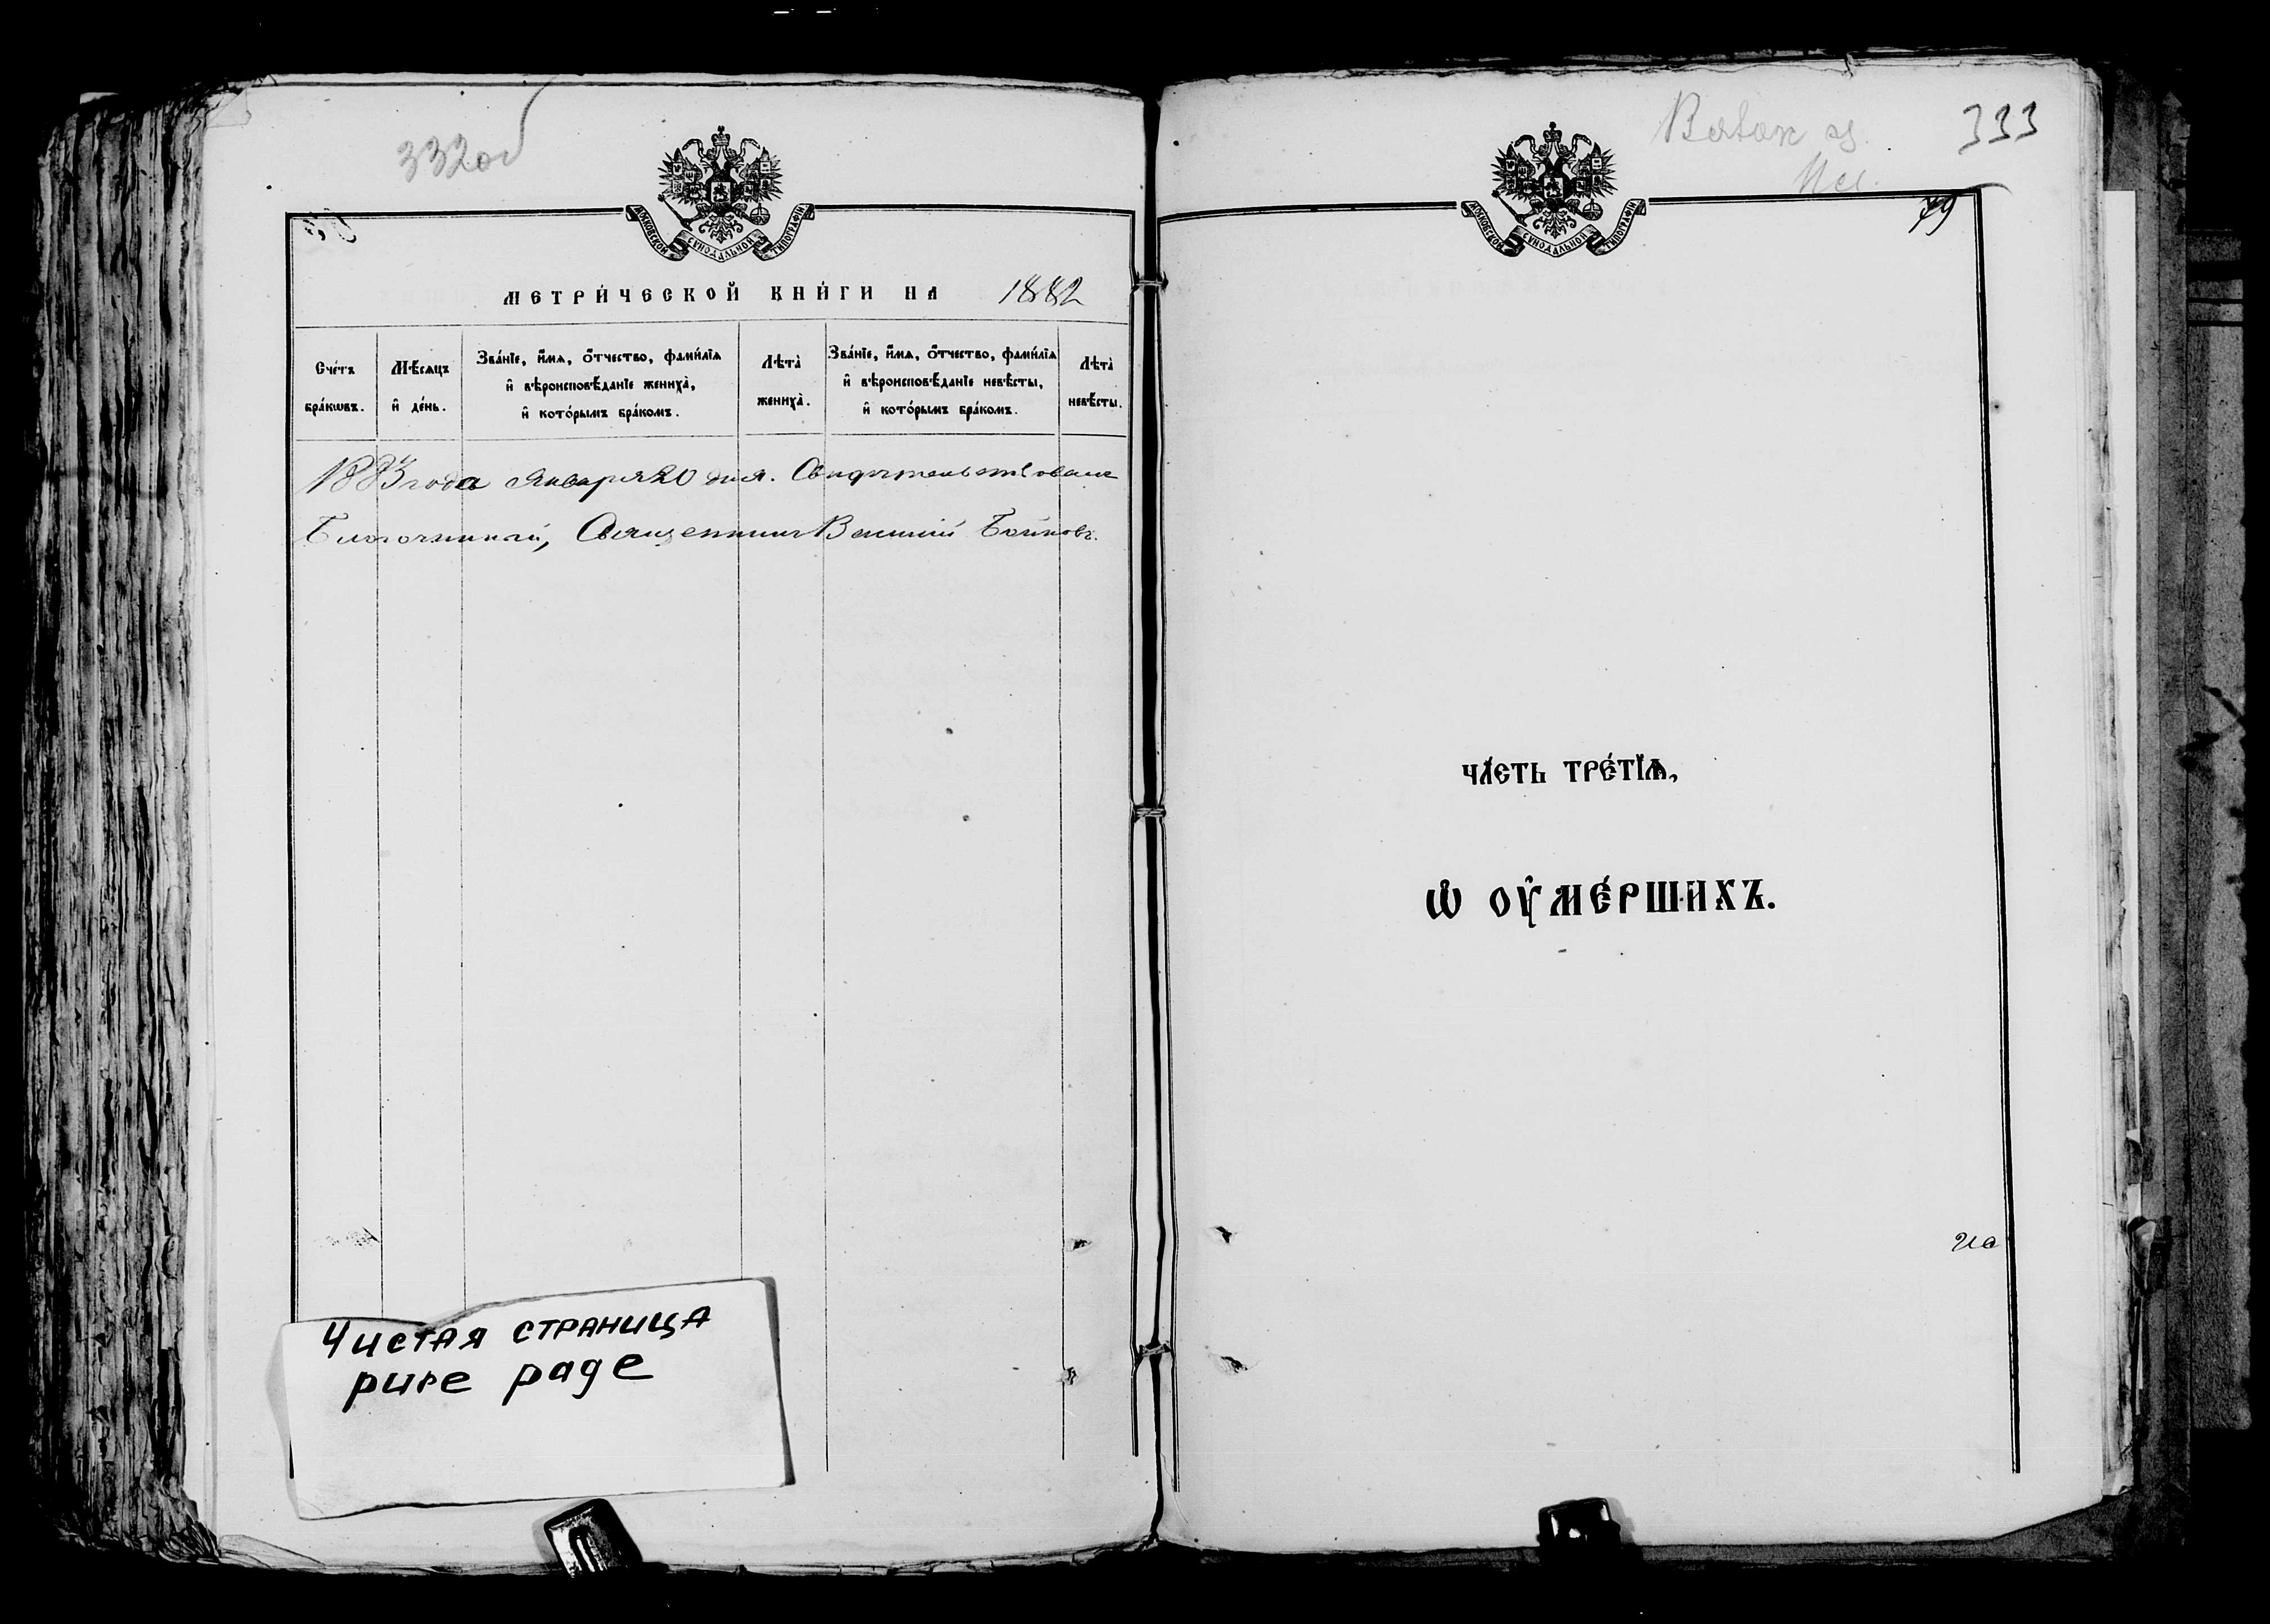 332об
МОСКОВСКОЙ СѴНОДАЛЬНОЙ ТИПОГРАФІИ
МЕТРИ́ЧЕСКОЙ КНИ́ГИ НА 1882
Сче́тъ бра́кѡвъ.
Мѣ́сяцъ и҆ де́нь.
Зва́нїе, и҆́мѧ, ѻ҆́тчество, фами́лїѧ
и҆ вѣроисповѣ́данїе жениха̀,
и҆ кото́рымъ бра́комъ.
Лѣта̀ жениха̀.
Зва́нїе, и҆́мѧ, ѻ҆́тчество, фами́лїѧ
и҆ вѣроисповѣ́данїе невѣ́сты,
и҆ кото́рымъ бра́комъ.
Лѣта̀ невѣ́сты.
1883 года Января 20 дня. Свидѣтельствовалъ
Благочинный, Священникъ Василій
Чистая страница
pure page
333
79
МОСКОВСКОЙ СѴНОДАЛЬНОЙ ТИПОГРАФІИ
ЧА́СТЬ ТРЕ́ТЇѦ,
Ѡ҆ ОУ҆МЕ́РШИХЪ.